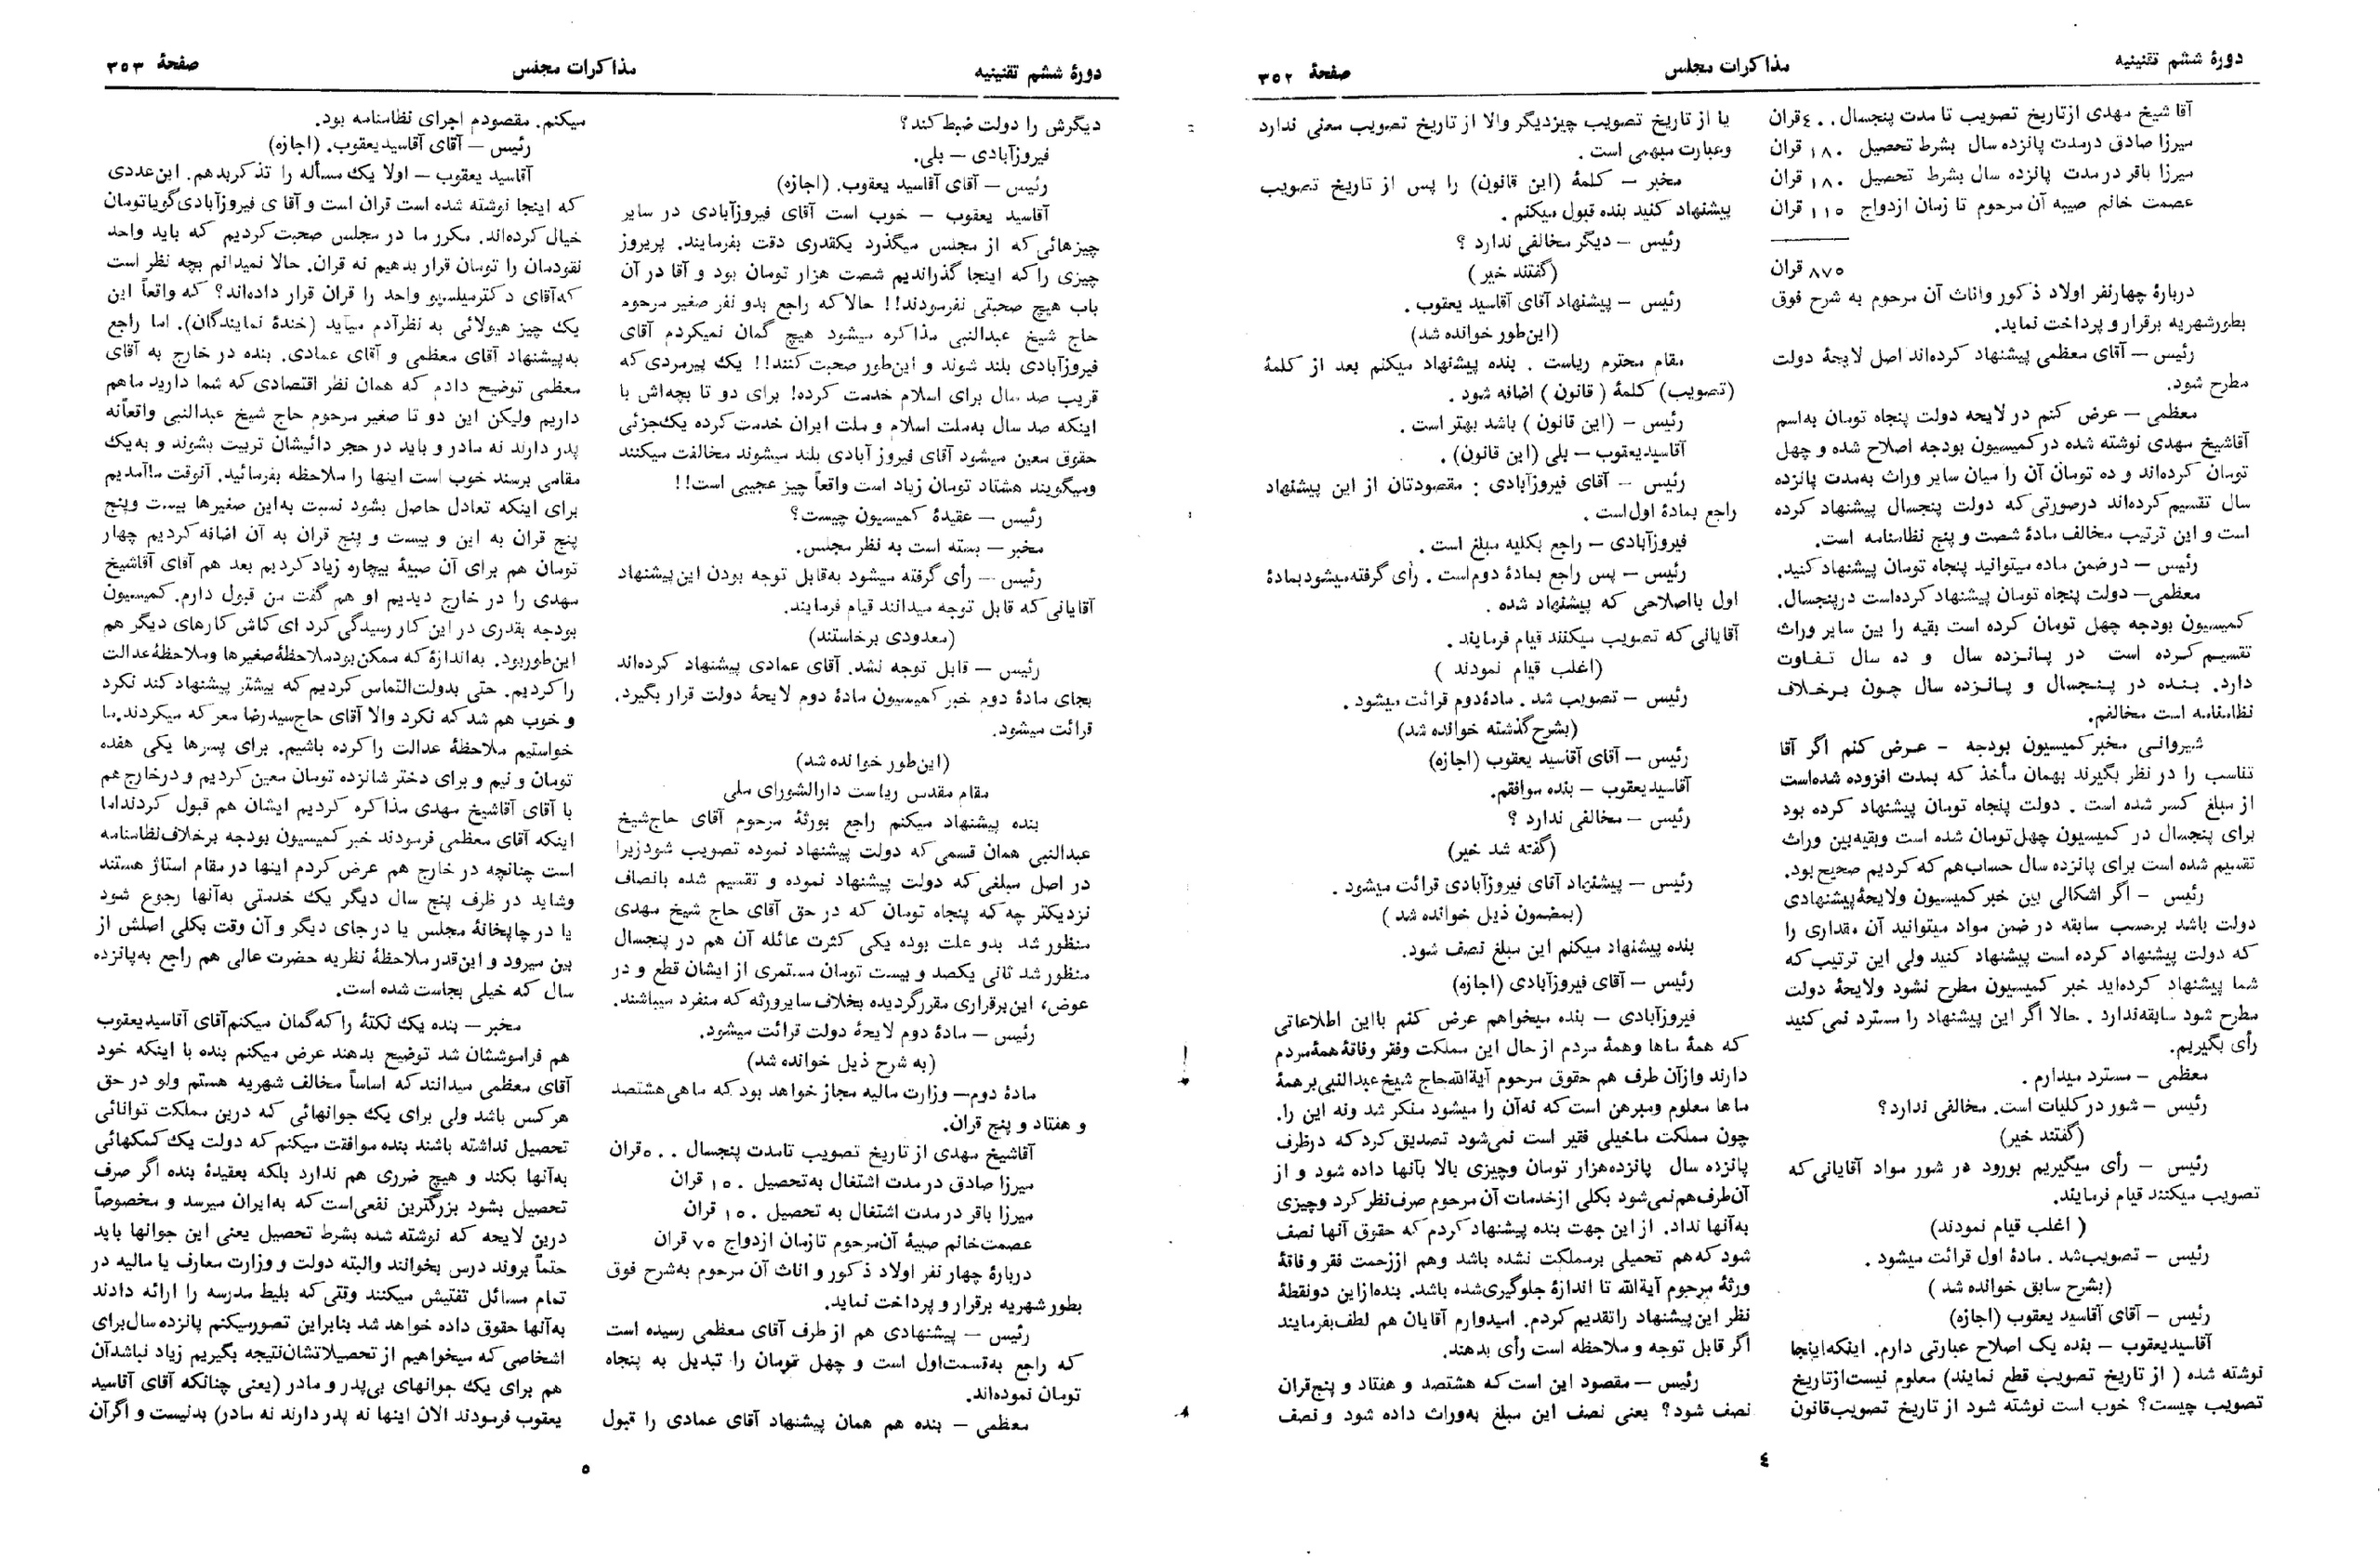 دورهٔ ششم تقنینیه
مذاکرات مجلس
صفحهٔ ۳۵۲
آقا شیخ مهدی ازتاریخ تصویب تا مدت پنجسال ۴۰۰ قران
میرزا صادق درمدت پانزده سال بشرط تحصیل ۱۸۰ قران
میرزا باقر در مدت پانزده سال بشرط تحصیل ۱۸۰ قران
عصمت خانم صبیه آن مرحوم تا زمان ازدواج ۱۱۵ قران
۸۷۵ قران
دربارهٔ چهارنفر اولاد ذکور واناث آن مرحوم به شرح فوق
بطورشهریه برقرار و پرداخت نماید.
رئیس – آقای معظمی پیشنهاد کرده‌اند اصل لایحهٔ دولت
مطرح شود.
معظمی – عرض کنم در لایحه دولت پنجاه تومان به‌اسم
آقاشیخ مهدی نوشته شده در کمیسیون بودجه اصلاح شده و چهل
تومان کرده‌اند و ده تومان آن را میان سایر وراث به‌مدت پانزده
سال تقسیم کرده‌اند درصورتی که دولت پنجسال پیشنهاد کرده
است و این ترتیب مخالف مادهٔ شصت و پنج نظامنامه است.
رئیس – درضمن ماده میتوانید پنجاه تومان پیشنهاد کنید.
معظمی – دولت پنجاه تومان پیشنهاد کرده‌است درپنجسال.
کمیسیون بودجه چهل تومان کرده است بقیه را بین سایر وراث
تقسیم کرده است در پانزده سال و ده سال تفاوت
دارد. بنده در پنجسال و پانزده سال چون برخلاف
نظامنامه است مخالفم.
شیروانی مخبر کمیسیون بودجه – عرض کنم اگر آقا
تناسب را در نظر بگیرند بهمان مأخذ که بمدت افزوده شده‌است
از مبلغ کسر شده است . دولت پنجاه تومان پیشنهاد کرده بود
برای پنجسال در کمیسیون چهل‌تومان شده است وبقیه‌بین وراث
تقسیم شده است برای پانزده سال حساب‌هم که کردیم صحیح بود.
رئیس – اگر اشکالی بین خبر کمیسیون ولایحهٔ پیشنهادی
دولت باشد برحسب سابقه در ضمن مواد میتوانید آن مقداری را
که دولت پیشنهاد کرده است پیشنهاد کنید ولی این ترتیب که
شما پیشنهاد کرده‌اید خبر کمیسیون مطرح نشود ولایحهٔ دولت
مطرح شود سابقه‌ندارد . حالا اگر این پیشنهاد را مسترد نمی‌کنید
رأی بگیریم.
معظمی – مسترد میدارم .
رئیس – شور درکلیات است. مخالفی ندارد؟
(گفتند خیر)
رئیس – رأی میگیریم بورود در شور مواد آقایانی که
تصویب میکنند قیام فرمایند.
( اغلب قیام نمودند)
رئیس – تصویب‌شد . مادهٔ اول قرائت میشود .
(بشرح سابق خوانده شد )
رئیس – آقای آقاسید یعقوب (اجازه)
آقاسیدیعقوب – بنده یک اصلاح عبارتی دارم. اینکه‌اینجا
نوشته شده ( از تاریخ تصویب قطع نمایند) معلوم نیست‌ازتاریخ
تصویب چیست؟ خوب است نوشته شود از تاریخ تصویب‌قانون
یا از تاریخ تصویب چیزدیگر والا از تاریخ تصویب معنی ندارد
وعبارت مبهمی است .
مخبر – کلمهٔ (این قانون) را پس از تاریخ تصویب
پیشنهاد کنید بنده قبول میکنم .
رئیس – دیگر مخالفی ندارد ؟
(گفتند خیر)
رئیس – پیشنهاد آقای آقاسید یعقوب .
(این‌طور خوانده شد)
مقام محترم ریاست . بنده پیشنهاد میکنم بعد از کلمهٔ
(تصویب) کلمهٔ ( قانون ) اضافه شود .
رئیس – (این قانون ) باشد بهتر است .
آقاسیدیعقوب – بلی (این قانون) .
رئیس – آقای فیروزآبادی : مقصودتان از این پیشنهاد
راجع بمادهٔ اول‌است .
فیروزآبادی – راجع بکلیه مبلغ است .
رئیس – پس راجع بمادهٔ دوم‌است . رأی گرفته‌میشود‌بمادهٔ
اول بااصلاحی که پیشنهاد شده .
آقایانی که تصویب میکنند قیام فرمایند .
(اغلب قیام نمودند )
رئیس – تصویب شد . مادهٔ‌دوم قرائت میشود .
(بشرح گذشته خوانده شد)
رئیس – آقای آقاسید یعقوب (اجازه)
آقاسیدیعقوب – بنده موافقم.
رئیس – مخالفی ندارد ؟
(گفته شد خیر)
رئیس – پیشنهاد آقای فیروزآبادی قرائت میشود .
(بمضمون ذیل خوانده شد )
بنده پیشنهاد میکنم این مبلغ نصف شود.
رئیس – آقای فیروزآبادی (اجازه)
فیروزآبادی – بنده میخواهم عرض کنم بااین اطلاعاتی
که همهٔ ماها وهمهٔ مردم از حال این مملکت وفقر وفاقهٔ همهٔ‌مردم
دارند وازآن طرف هم حقوق مرحوم آیةالله‌حاج شیخ عبدالنبی‌برهمهٔ
ماها معلوم ومبرهن است که نه‌آن را میشود منکر شد ونه این را.
چون مملکت ماخیلی فقیر است نمی‌شود تصدیق کرد که درظرف
پانزده سال پانزده‌هزار تومان وچیزی بالا بآنها داده شود و از
آن‌طرف‌هم‌نمی‌شود بکلی ازخدمات آن‌مرحوم صرف‌نظر کرد وچیزی
به‌آنها نداد. از این جهت بنده پیشنهاد کردم که حقوق آنها نصف
شود که هم تحمیلی برمملکت نشده باشد وهم اززحمت فقر و فاقهٔ
ورثهٔ مرحوم آیةالله تا اندازهٔ جلوگیری‌شده باشد. بنده‌ازاین دونقطهٔ
نظر این‌پیشنهاد راتقدیم کردم. امیدوارم آقایان هم لطف‌بفرمایند
اگر قابل توجه و ملاحظه است رأی بدهند.
رئیس – مقصود این است که هشتصد و هفتاد و پنج‌قران
نصف شود؟ یعنی نصف این مبلغ به‌وراث داده شود و نصف
۴
دورهٔ ششم تقنینیه
مذاکرات مجلس
صفحهٔ ۳۵۳
دیگرش را دولت ضبط کند؟
فیروزآبادی – بلی.
رئیس – آقای آقاسید یعقوب. (اجازه)
آقاسید یعقوب – خوب است آقای فیروزآبادی در سایر
چیزهائی که از مجلس میگذرد یکقدری دقت بفرمایند. پریروز
چیزی را که اینجا گذراندیم شصت هزار تومان بود و آقا در آن
باب هیچ صحبتی نفرمودند!! حالا که راجع بدو نفر صغیر مرحوم
حاج شیخ عبدالنبی مذاکره میشود هیچ گمان نمیکردم آقای
فیروزآبادی بلند شوند و این‌طور صحبت کنند!! یک پیرمردی که
قریب صد سال برای اسلام خدمت کرده! برای دو تا بچه‌اش با
اینکه صد سال به‌ملت اسلام و ملت ایران خدمت کرده یک‌جزئی
حقوق معین میشود آقای فیروز آبادی بلند میشوند مخالفت میکنند
ومیگویند هشتاد تومان زیاد است واقعاً چیز عجیبی است!!
رئیس – عقیدهٔ کمیسیون چیست؟
مخبر – بسته است به نظر مجلس.
رئیس – رأی گرفته میشود به‌قابل توجه بودن این‌پیشنهاد
آقایانی که قابل توجه میدانند قیام فرمایند.
(معدودی برخاستند)
رئیس – قابل توجه نشد. آقای عمادی پیشنهاد کرده‌اند
بجای مادهٔ دوم خبر کمیسیون مادهٔ دوم لایحهٔ دولت قرار بگیرد.
قرائت میشود.
(این‌طور خوانده شد)
مقام مقدس ریاست دارالشورای ملی
بنده پیشنهاد میکنم راجع بورثهٔ مرحوم آقای حاج‌شیخ
عبدالنبی همان قسمی که دولت پیشنهاد نموده تصویب شودزیرا
در اصل مبلغی که دولت پیشنهاد نموده و تقسیم شده بانصاف
نزدیکتر چه که پنجاه تومان که در حق آقای حاج شیخ مهدی
منظور شد بدو علت بوده یکی کثرت عائله آن هم در پنجسال
منظور شد ثانی یکصد و بیست تومان مستمری از ایشان قطع و در
عوض، این‌برقراری مقررگردیده بخلاف سایرورثه که منفرد میباشند.
رئیس – مادهٔ دوم لایحهٔ دولت قرائت میشود.
(به شرح ذیل خوانده شد)
مادهٔ دوم– وزارت مالیه مجاز خواهد بود که ماهی هشتصد
و هفتاد و پنج قران.
آقاشیخ مهدی از تاریخ تصویب تامدت پنجسال ۵۰۰قران
میرزا صادق در مدت اشتغال به‌تحصیل ۱۵۰ قران
میرزا باقر در مدت اشتغال به تحصیل ۱۵۰ قران
عصمت‌خانم صبیهٔ آن‌مرحوم تازمان ازدواج ۷۵ قران
دربارهٔ چهار نفر اولاد ذکور و اناث آن مرحوم به‌شرح فوق
بطور شهریه برقرار و پرداخت نماید.
رئیس – پیشنهادی هم از طرف آقای معظمی رسیده است
که راجع به‌قسمت‌اول است و چهل تومان را تبدیل به پنجاه
تومان نموده‌اند.
معظمی – بنده هم همان پیشنهاد آقای عمادی را قبول
میکنم. مقصودم اجرای نظامنامه بود.
رئیس – آقای آقاسیدیعقوب. (اجازه)
آقاسید یعقوب – اولا یک مسأله را تذکر بدهم. این‌عددی
که اینجا نوشته شده است قران است و آقای فیروزآبادی گویاتومان
خیال کرده‌اند. مکرر ما در مجلس صحبت کردیم که باید واحد
نقودمان را تومان قرار بدهیم نه قران. حالا نمیدانم بچه نظر است
که‌آقای دکترمیلسپو واحد را قران قرار داده‌اند؟ که واقعاً این
یک چیز هیولائی به نظرآدم میآید (خندهٔ نمایندگان). اما راجع
به‌پیشنهاد آقای معظمی و آقای عمادی. بنده در خارج به آقای
معظمی توضیح دادم که همان نظر اقتصادی که شما دارید ماهم
داریم ولیکن این دو تا صغیر مرحوم حاج شیخ عبدالنبی واقعاًنه
پدر دارند نه مادر و باید در حجر دائیشان تربیت بشوند و به‌یک
مقامی برسند خوب است اینها را ملاحظه بفرمائید. آنوقت ماآمدیم
برای اینکه تعادل حاصل بشود نسبت به‌این صغیرها بیست وپنج
پنج قران به این و بیست و پنج قران به آن اضافه کردیم چهار
تومان هم برای آن صبیهٔ بیچاره زیاد کردیم بعد هم آقای آقاشیخ
مهدی را در خارج دیدیم او هم گفت من قبول دارم. کمیسیون
بودجه بقدری در این کار رسیدگی کرد ای کاش کارهای دیگر هم
این‌طوربود. به‌اندازهٔ که ممکن بودملاحظهٔ صغیرها وملاحظهٔ عدالت
را کردیم. حتی بدولت‌التماس کردیم که بیشتر پیشنهاد کند نکرد
و خوب هم شد که نکرد والا آقای حاج‌سیدرضا معرکه میکردند.ما
خواستیم ملاحظهٔ عدالت را کرده باشیم. برای پسرها یکی هفده
تومان و نیم و برای دختر شانزده تومان معین کردیم و درخارج‌هم
با آقای آقاشیخ مهدی مذاکره کردیم ایشان هم قبول کردنداما
اینکه آقای معظمی فرمودند خبر کمیسیون بودجه برخلاف‌نظامنامه
است چنانچه در خارج هم عرض کردم اینها در مقام استاژ هستند
وشاید در ظرف پنج سال دیگر یک خدمتی به‌آنها رجوع شود
یا در چاپخانهٔ مجلس یا در جای دیگر و آن وقت بکلی اصلش از
بین میرود و این‌قدر ملاحظهٔ نظریه حضرت عالی هم راجع به‌پانزده
سال که خیلی بجاست شده است.
مخبر – بنده یک نکتهٔ را که‌گمان میکنم‌آقای آقاسیدیعقوب
هم فراموششان شد توضیح بدهند عرض میکنم بنده با اینکه خود
آقای معظمی میدانند که اساساً مخالف شهریه هستم ولو در حق
هرکس باشد ولی برای یک جوانهائی که درین مملکت توانائی
تحصیل نداشته باشند بنده موافقت میکنم که دولت یک کمکهائی
به‌آنها بکند و هیچ ضرری هم ندارد بلکه بعقیدهٔ بنده اگر صرف
تحصیل بشود بزرگترین نفعی‌است که به‌ایران میرسد و مخصوصاً
درین لایحه که نوشته شده بشرط تحصیل یعنی این جوانها باید
حتماً بروند درس بخوانند والبته دولت و وزارت معارف یا مالیه در
تمام مسائل تفتیش میکنند وقتی که بلیط مدرسه را ارائه دادند
به‌آنها حقوق داده خواهد شد بنابراین تصورمیکنم پانزده سال‌برای
اشخاصی که میخواهیم از تحصیلاتشان‌نتیجه بگیریم زیاد نباشدآن
هم برای یک جوانهای بی‌پدر و مادر (یعنی چنانکه آقای آقاسید
یعقوب فرمودند الان اینها نه پدر دارند نه مادر) بدنیست و اگرآن
۵